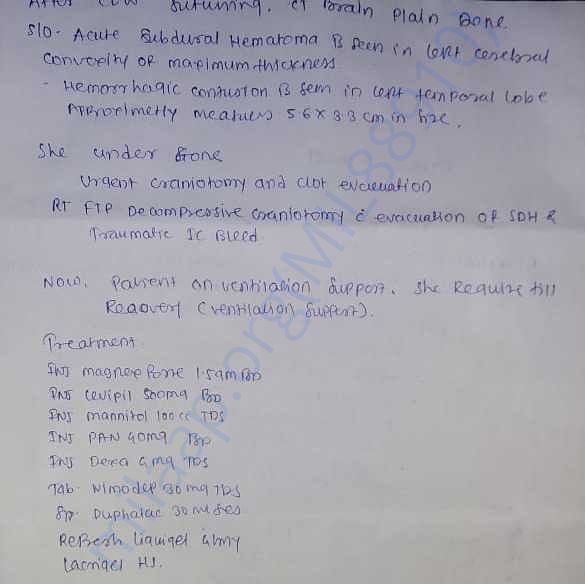 After CLW Suturing. CT Brain Plain Done
S/O - Acute Subdural Hematoma is seen in left cerebral
convexity of maximum thickness
- Hemorrhagic contusion is seen in left temporal lobe
Approximetly measures 5.6 x 3.3 cm in size.
She under gone
Urgent craniotomy and clot evacuation
RT FTP Decompressive craniotomy c evacuation of SDH &
Traumatic IC Bleed
Now. Patient on ventilation support. She Require till
Recovery (ventilation support).
Treatment
INJ 1.5gm BD
INJ Levipil 500mg BD
INJ mannitol 100cc TDS
INJ PAN 40mg BD
INJ Dexa 4mg TDS
Tab. Nimodep 30mg TDS
Syp. Duphalac 30ml
Refresh liquigel
Lacrigel HS.
milaap.org(MIL889107